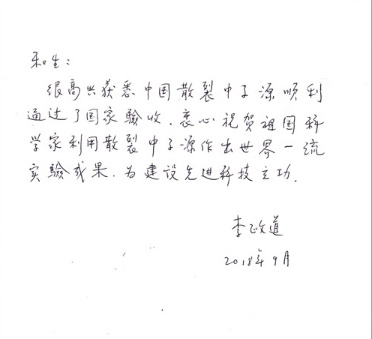 和生：
很高兴获悉中国散裂中子源顺利
通过了国家验收，衷心祝贺祖国科
学家利用散裂中子源作出世界一流
实验成果，为建设先进科技立功。
李政道
2018年9月